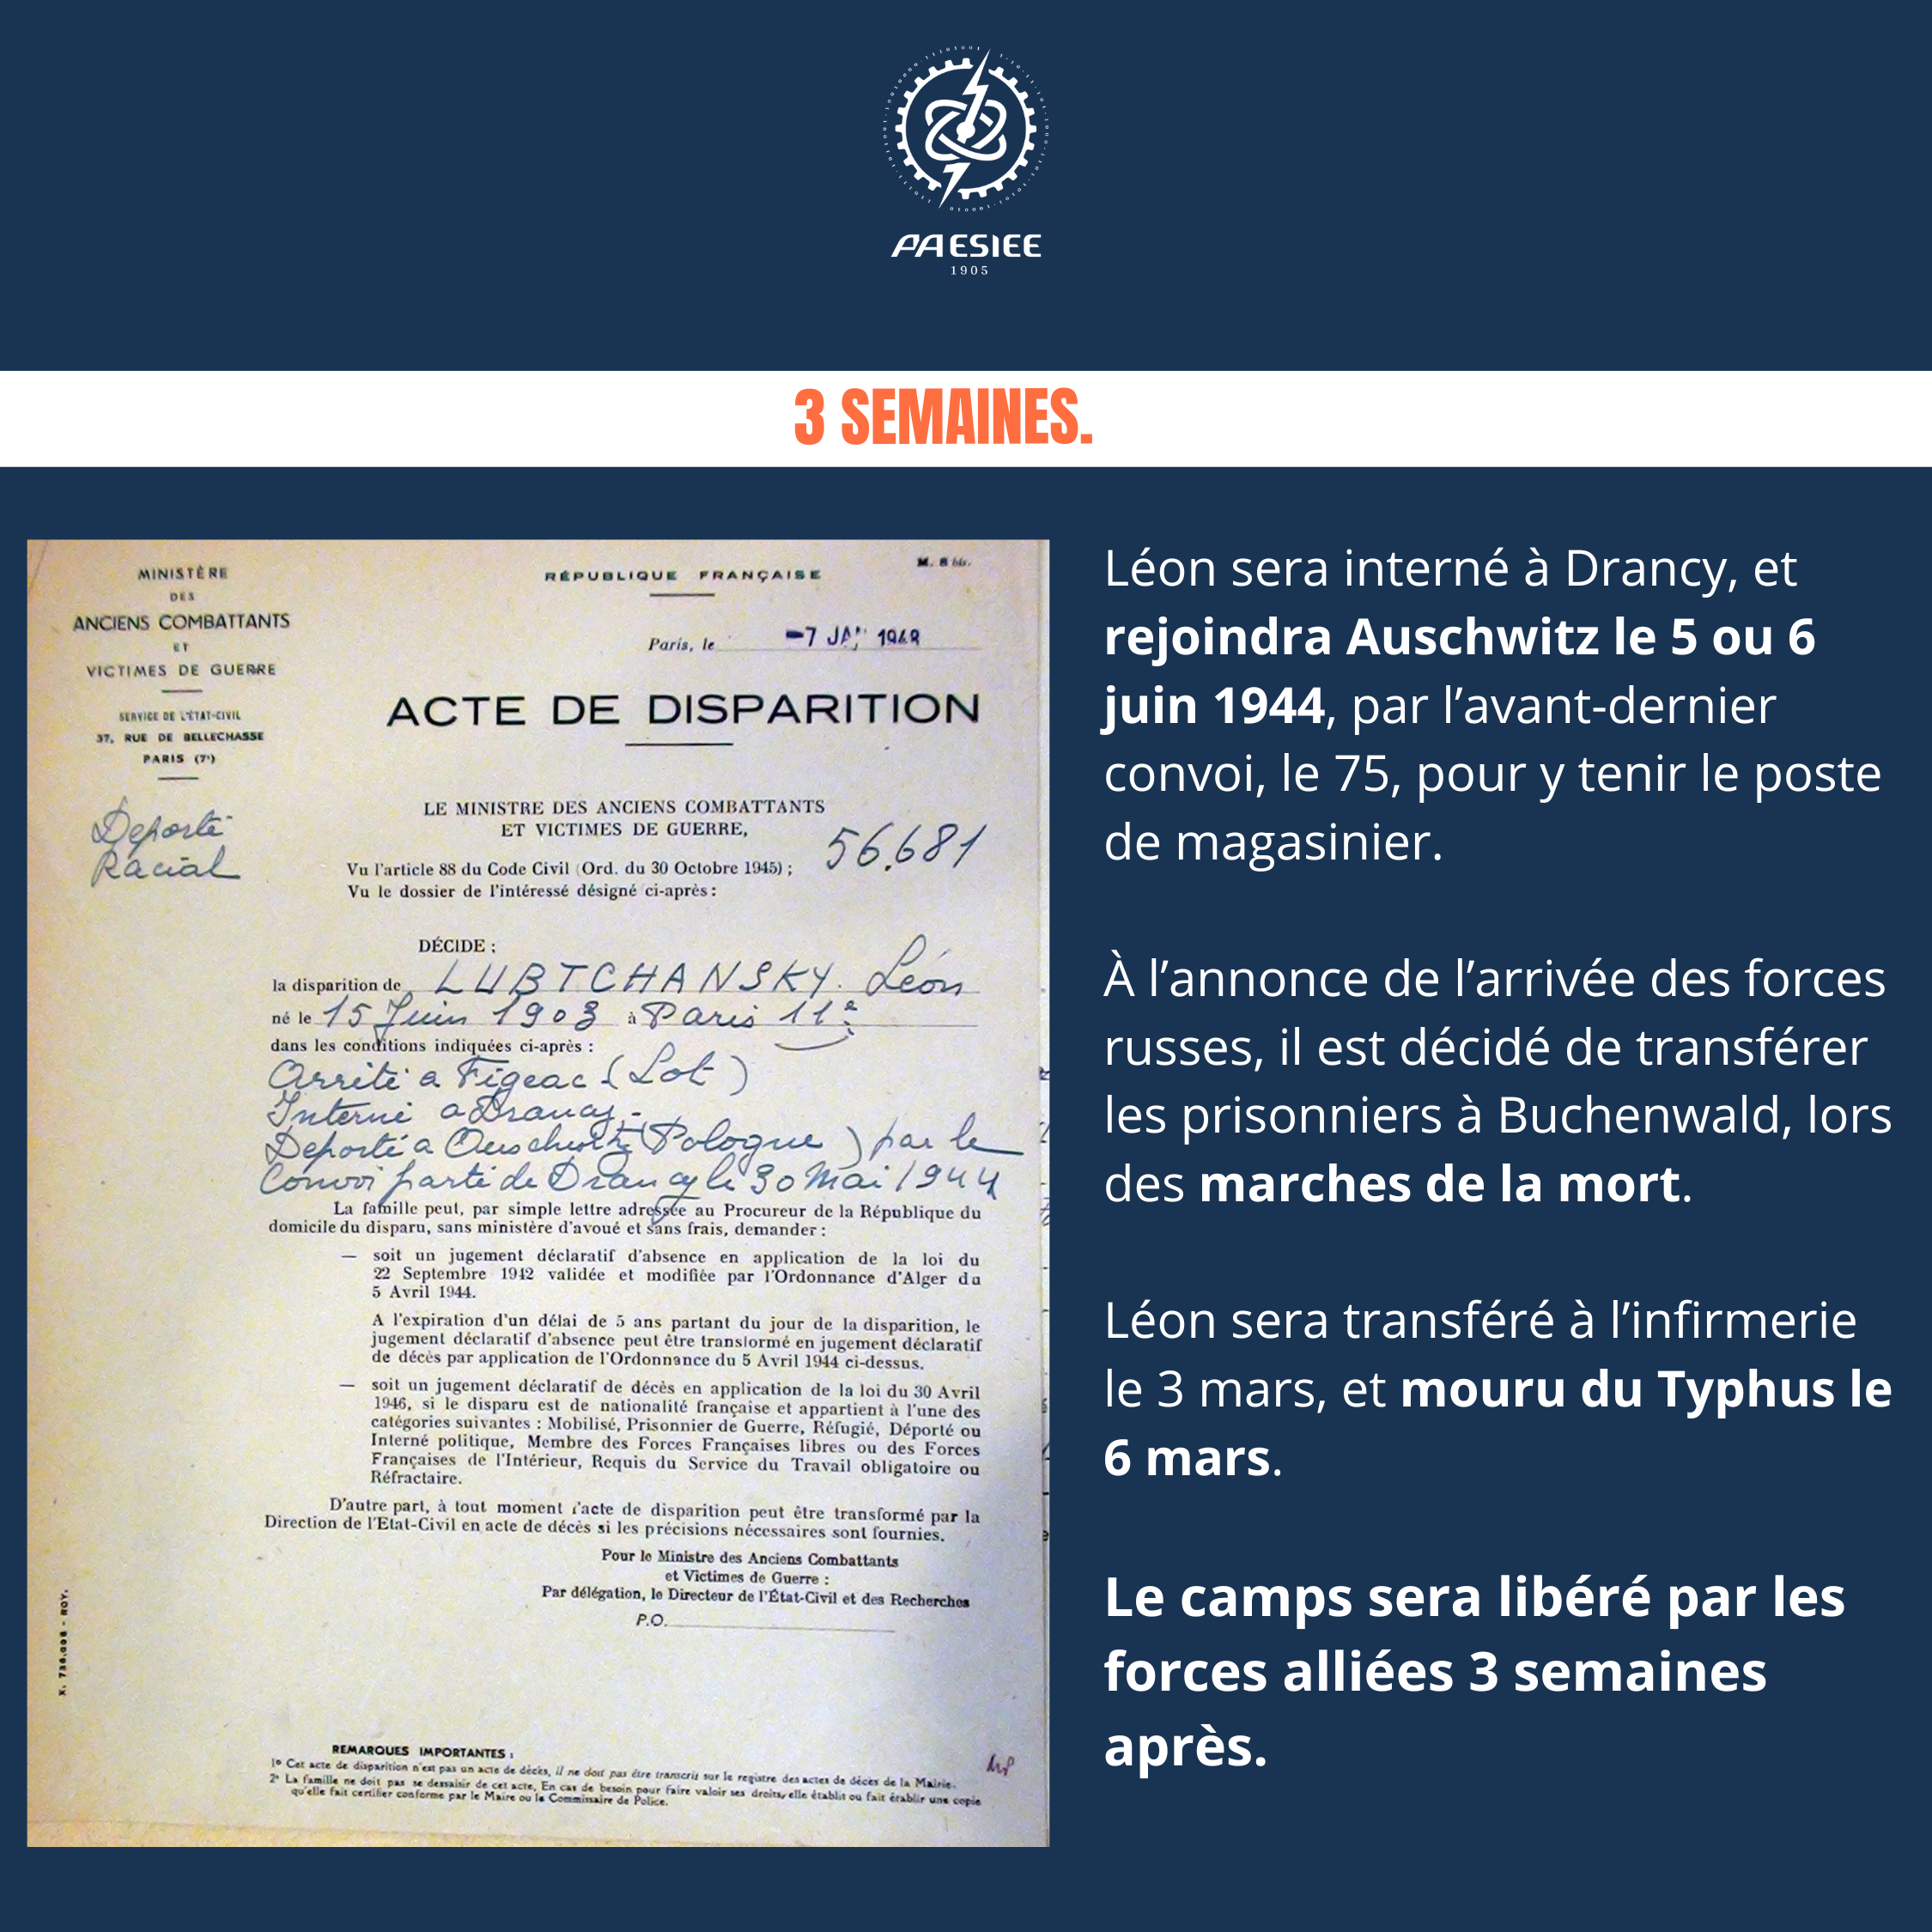 PAESIEE
1905
3 SEMAINES.
MINISTÈRE
DES
ANCIENS COMBATTANTS
ET
VICTIMES DE GUERRE
SERVICE DE L'ÉTAT-CIVIL
37, RUE DE BELLECHASSE
PARIS (7e)
Deporté
Racial
RÉPUBLIQUE FRANÇAISE
M. 8 bis.
Paris, le -7 JAN 1948
ACTE DE DISPARITION
LE MINISTRE DES ANCIENS COMBATTANTS
ET VICTIMES DE GUERRE,
56.681
Vu l'article 88 du Code Civil (Ord. du 30 Octobre 1945) ;
Vu le dossier de l'intéressé désigné ci-après :
DÉCIDE :
la disparition de LUBTCHANSKY. Léon
né le 15 Juin 1903 à Paris 11e
dans les conditions indiquées ci-après :
Arrêté a Figeac (Lot)
Interné a Drancy.
Deporté a (Pologne) par le
Convoi parti de Drancy le 30 Mai 1944
La famille peut, par simple lettre adressée au Procureur de la République du
domicile du disparu, sans ministère d'avoué et sans frais, demander :
— soit un jugement déclaratif d'absence en application de la loi du
22 Septembre 1942 validée et modifiée par l'Ordonnance d'Alger du
5 Avril 1944.
A l'expiration d'un délai de 5 ans partant du jour de la disparition, le
jugement déclaratif d'absence peut être transformé en jugement déclaratif
de décès par application de l'Ordonnance du 5 Avril 1944 ci-dessus.
— soit un jugement déclaratif de décès en application de la loi du 30 Avril
1946, si le disparu est de nationalité française et appartient à l'une des
catégories suivantes : Mobilisé, Prisonnier de Guerre, Réfugié, Déporté ou
Interné politique, Membre des Forces Françaises libres ou des Forces
Françaises de l'Intérieur, Requis du Service du Travail obligatoire ou
Réfractaire.
D'autre part, à tout moment l'acte de disparition peut être transformé par la
Direction de l'Etat-Civil en acte de décès si les précisions nécessaires sont fournies.
Pour le Ministre des Anciens Combattants
et Victimes de Guerre :
Par délégation, le Directeur de l'État-Civil et des Recherches
P.O.
REMARQUES IMPORTANTES :
1º Cet acte de disparition n'est pas un acte de décès, il ne doit pas être transcris sur le registre des actes de décès de la Mairie.
2º La famille ne doit pas se dessaisir de cet acte, En cas de besoin pour faire valoir ses droits, elle établit ou fait établir une copie
qu'elle fait certifier conforme par le Maire ou le Commissaire de Police.
Léon sera interné à Drancy, et
rejoindra Auschwitz le 5 ou 6
juin 1944, par l’avant-dernier
convoi, le 75, pour y tenir le poste
de magasinier.
À l’annonce de l’arrivée des forces
russes, il est décidé de transférer
les prisonniers à Buchenwald, lors
des marches de la mort.
Léon sera transféré à l’infirmerie
le 3 mars, et mouru du Typhus le
6 mars.
Le camps sera libéré par les
forces alliées 3 semaines
après.